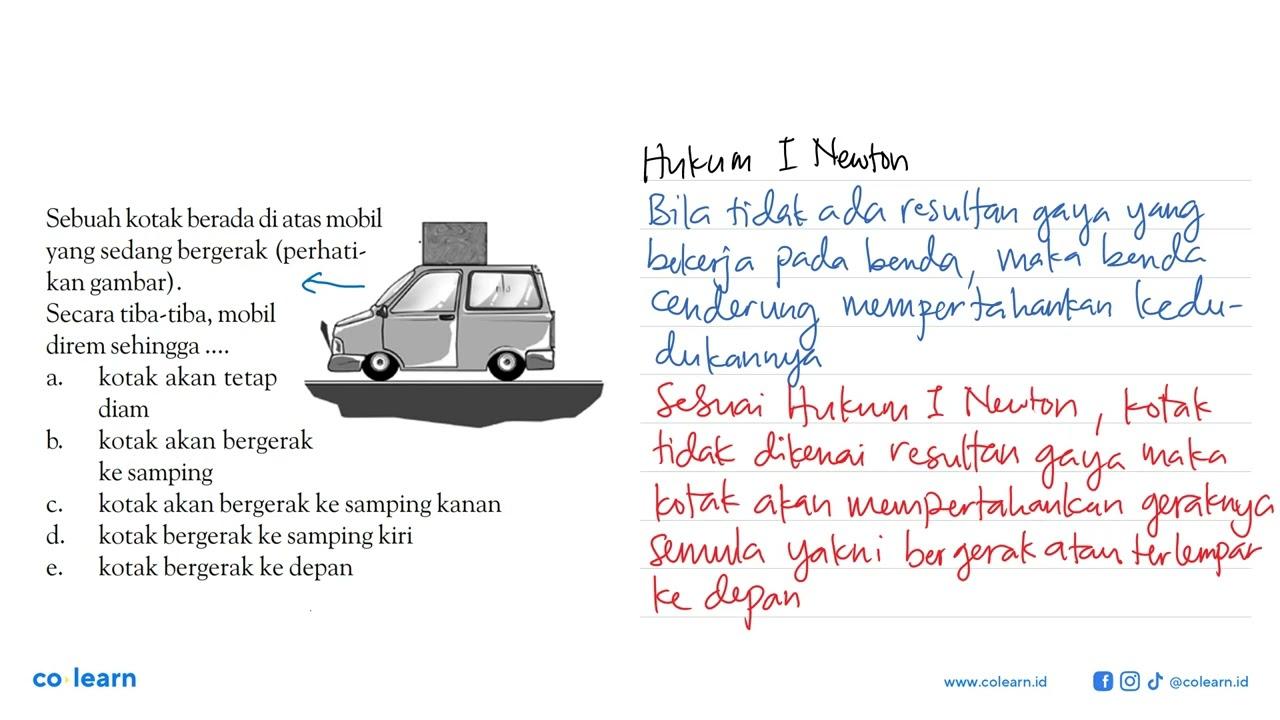 Sebuah kotak berada di atas mobil
yang sedang bergerak (perhati-
kan gambar).
Secara tiba-tiba, mobil
direm sehingga ....
a. kotak akan tetap
diam
b. kotak akan bergerak
ke samping
c. kotak akan bergerak ke samping kanan
d. kotak bergerak ke samping kiri
e. kotak bergerak ke depan
Hukum I Newton
Bila tidak ada resultan gaya yang
bekerja pada benda, maka benda
cenderung mempertahankan kedu-
dukannya
Sesuai Hukum I Newton, kotak
tidak dikenai resultan gaya maka
kotak akan mempertahankan geraknya
semula yakni bergerak atau terlempar
ke depan
co learn
www.colearn.id
@colearn.id